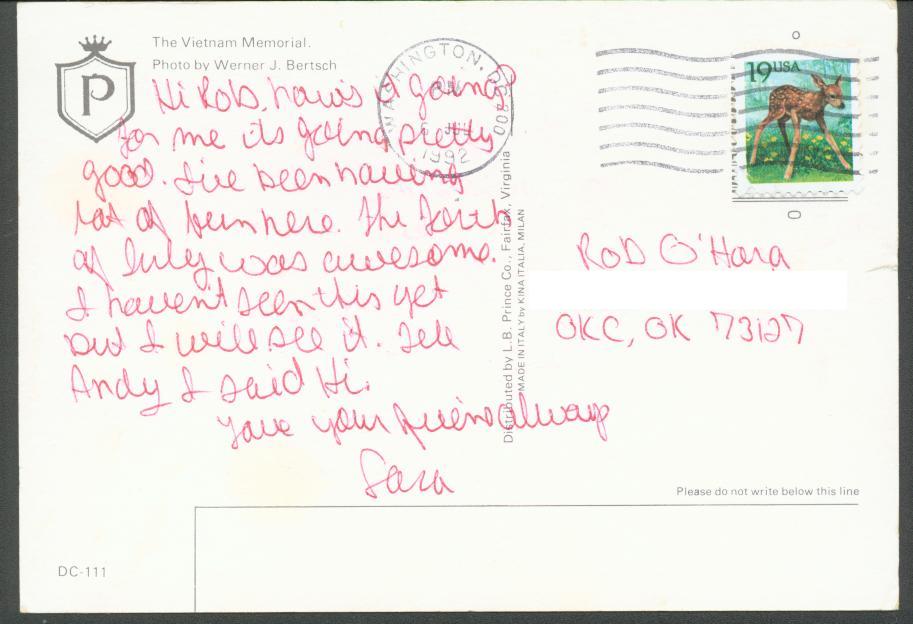 The Vietnam Memorial.
Photo by Werner J. Bertsch
P
WASHINGTON, DC 200
1992
19USA
Hi Rob, how's it going?
for me its going pretty
good. I've been having
lot of fun here. The Forth
of July was awesome.
I haven't seen this yet
but I will see it. Tell
Andy I said Hi.
Love your friend always
Sara
Distributed by L.B. Prince Co., Fairfax, Virginia
MADE IN ITALY by KINA ITALIA, MILAN
Rob O'Hara
OKC, OK 73127
Please do not write below this line
DC-111